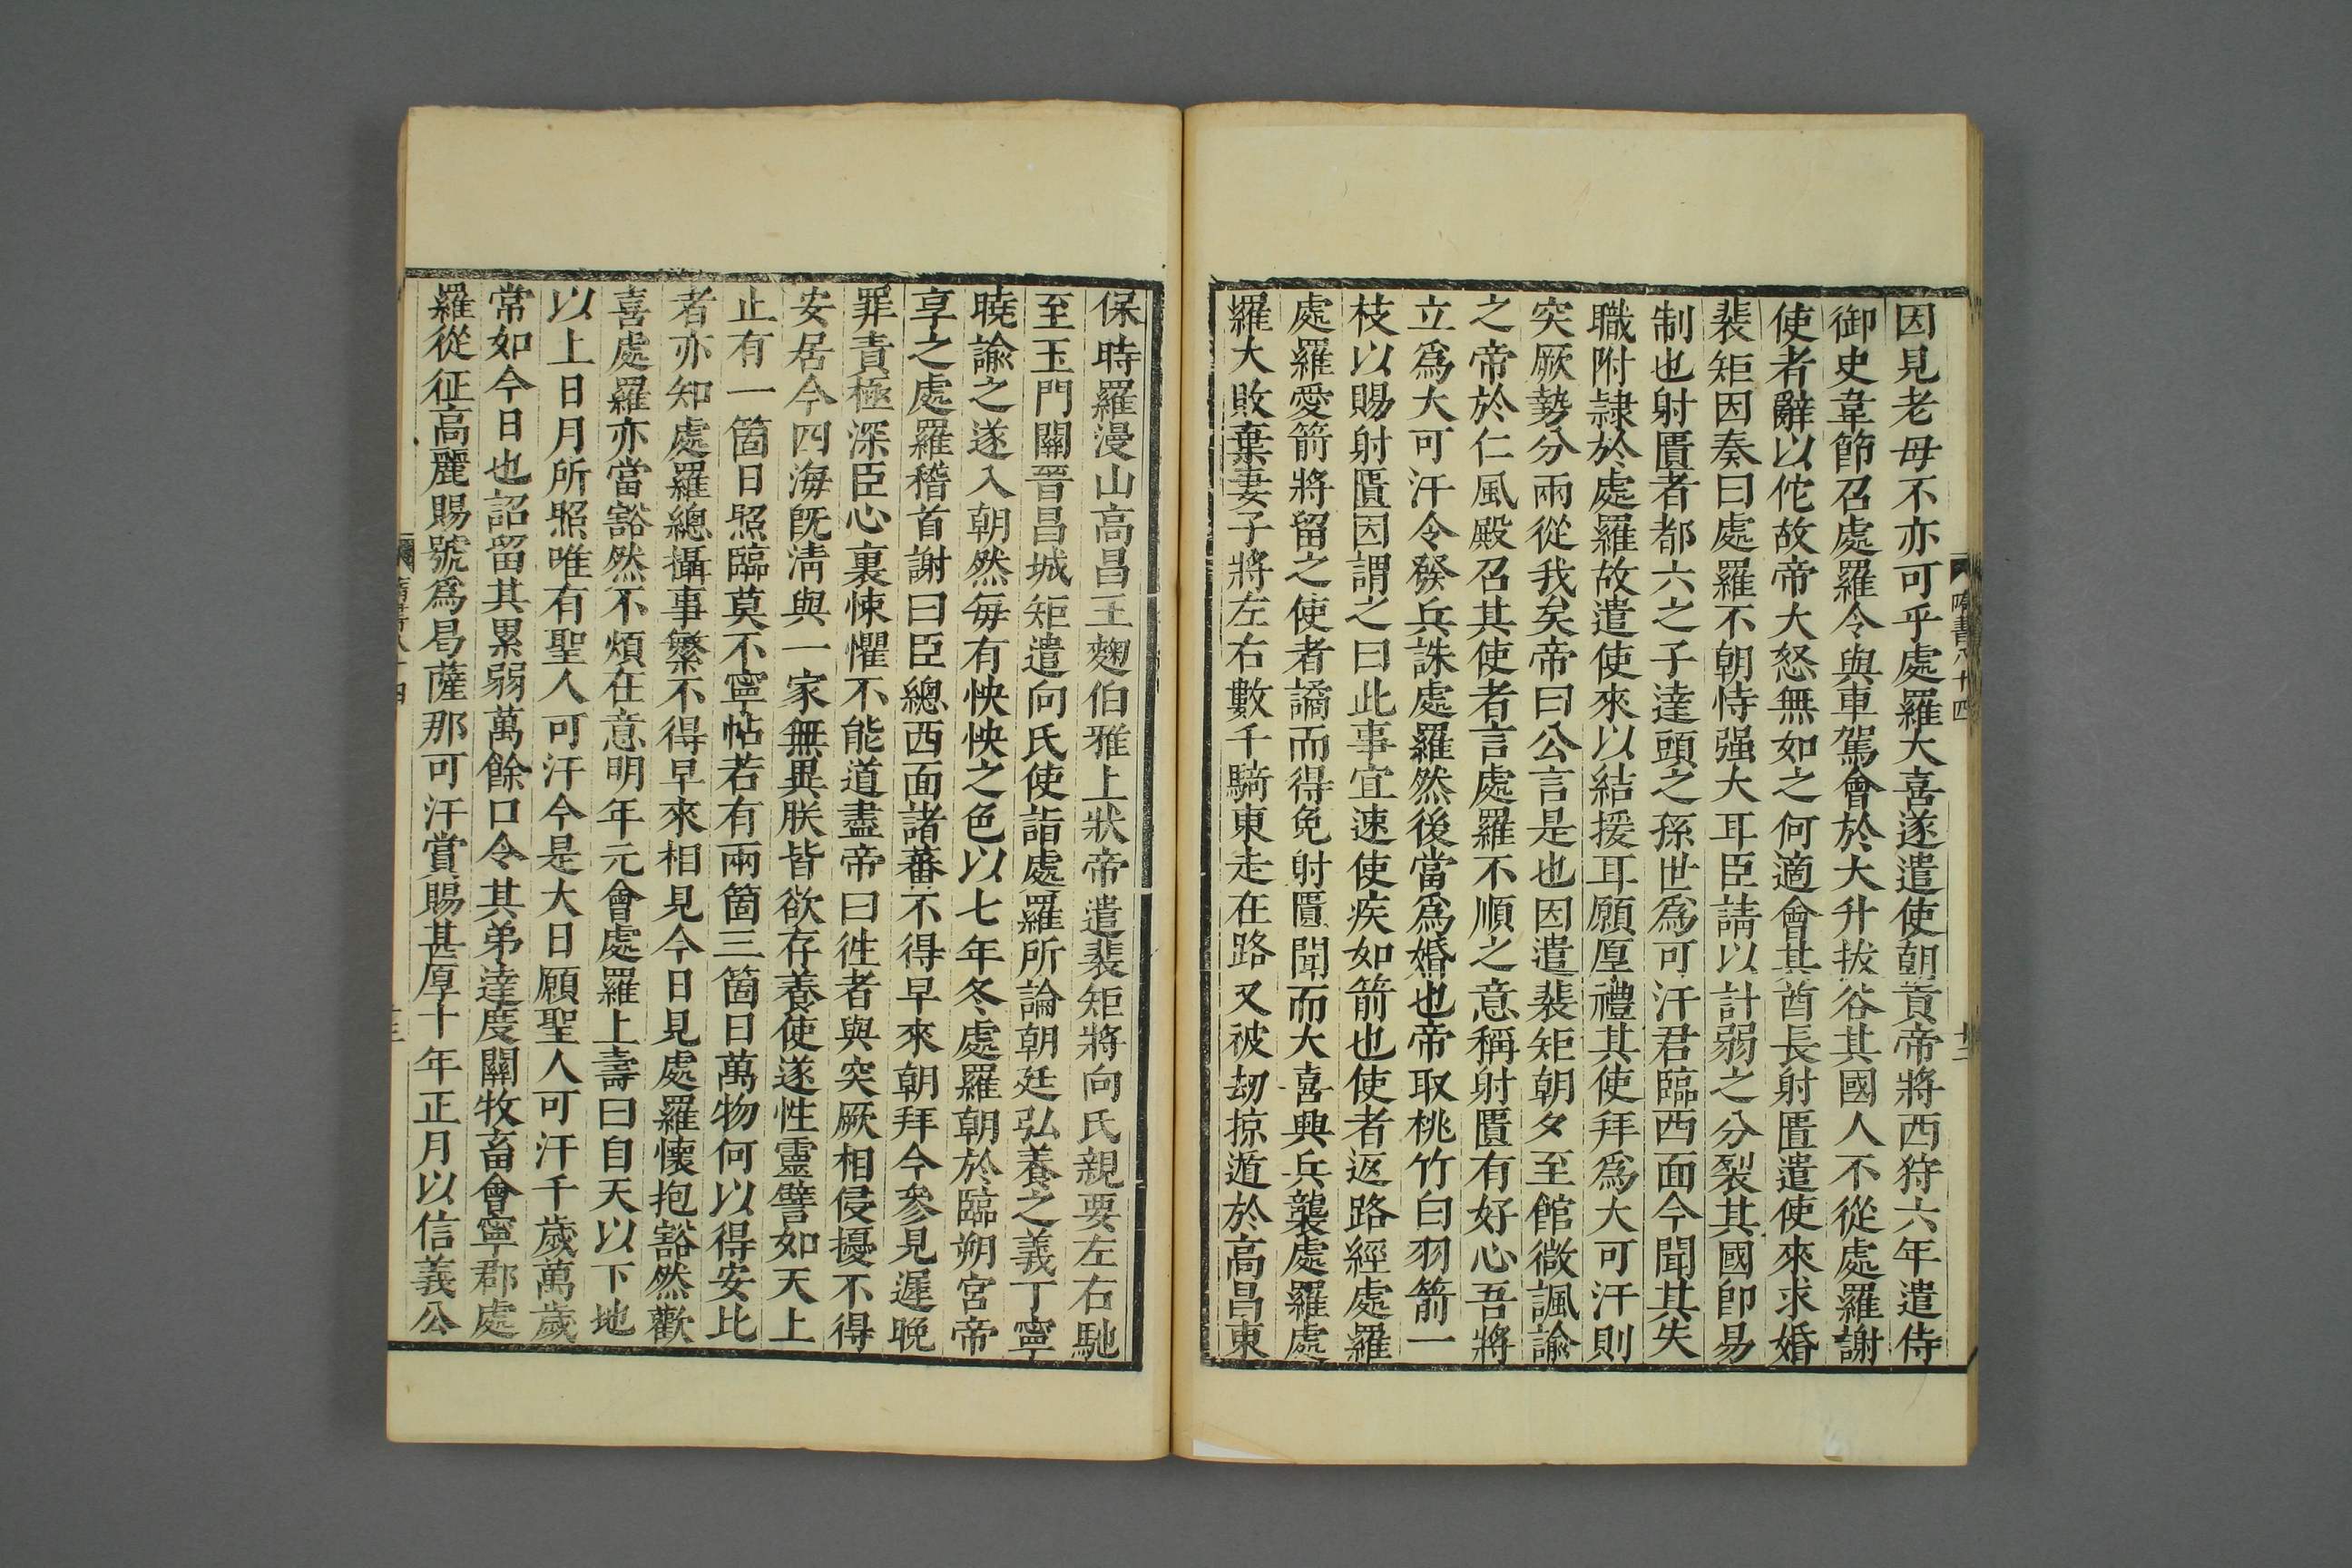 因見老母不亦可乎處羅大喜遂遣使朝貢帝將西狩六年遣侍
御史韋節召處羅令與車駕會於大升拔谷其國人不從處羅謝
使者辭以佗故帝大怒無如之何適會其酋長射匱遣使來求婚
裴矩因奏曰處羅不朝恃强大耳臣請以計弱之分裂其國即易
制也射匱者都六之子達頭之孫世爲可汗君臨西面今聞其失
職附隷於處羅故遣使來以結援耳願厚禮其使拜爲大可汗則
突厥勢分兩從我矣帝曰公言是也因遣裴矩朝夕至館微諷諭
之帝於仁風殿召其使者言處羅不順之意稱射匱有好心吾將
立爲大可汗令發兵誅處羅然後當爲婚也帝取桃竹白羽箭一
枝以賜射匱因謂之曰此事宜速使疾如箭也使者返路經處羅
處羅愛箭將留之使者譎而得免射匱聞而大喜興兵襲處羅處
羅大敗棄妻子將左右數千騎東走在路又被劫掠遁於高昌東
隋書八十四
廿二
保時羅漫山高昌王麴伯雅上狀帝遣裴矩將向氏親要左右馳
至玉門關晉昌城矩遣向氏使詣處羅所論朝廷弘養之義丁寧
曉諭之遂入朝然每有怏怏之色以七年冬處羅朝於臨朔宮帝
享之處羅稽首謝曰臣總西面諸蕃不得早來朝拜今參見遲晚
罪責極深臣心裏悚懼不能道盡帝曰徃者與突厥相侵擾不得
安居今四海旣淸與一家無異朕皆欲存養使遂性靈譬如天上
止有一箇日照臨莫不寧帖若有兩箇三箇日萬物何以得安比
者亦知處羅總攝事繁不得早來相見今日見處羅懷抱豁然歡
喜處羅亦當豁然不煩在意明年元會處羅上壽曰自天以下地
以上日月所照唯有聖人可汗今是大日願聖人可汗千歲萬歲
常如今日也詔留其累弱萬餘口令其弟達度闕牧畜會寧郡處
羅從征高麗賜號爲曷薩那可汗賞賜甚厚十年正月以信義公